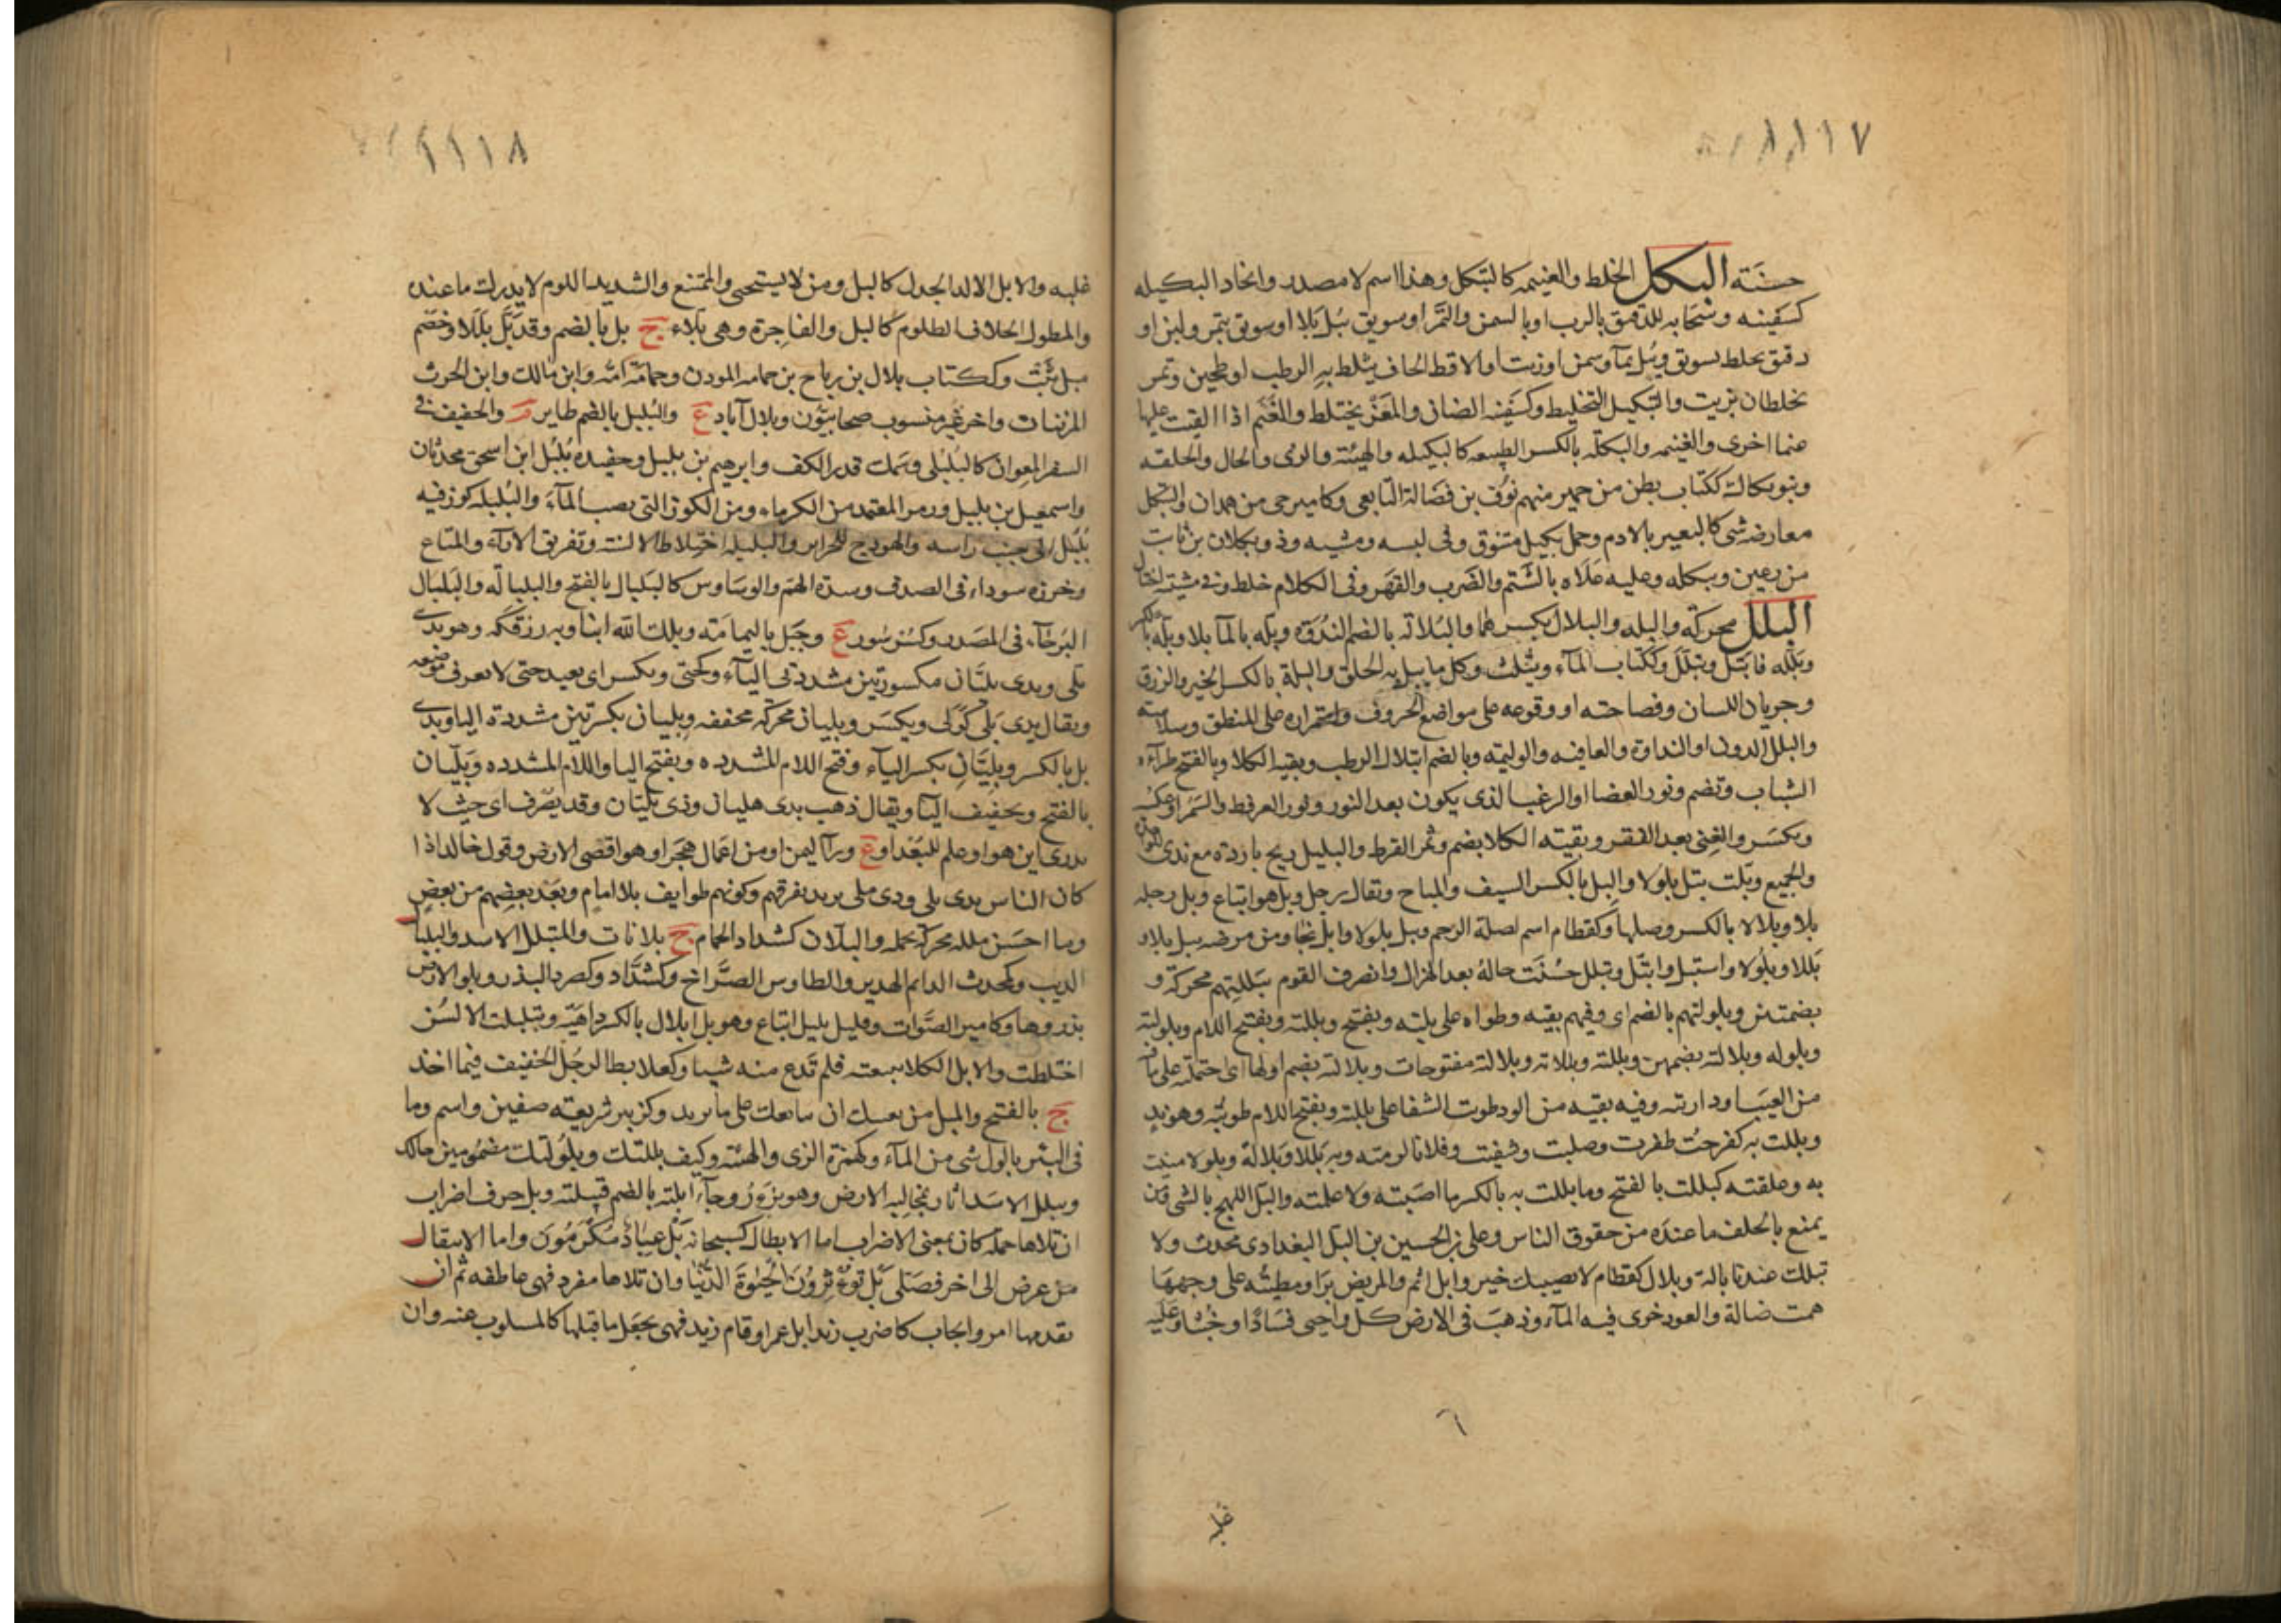 ١١١٧
حسنته البكل الخلط والغنيمه كالتبكل وهذا اسم لا مصدر واتخاذ البكيله
كسفينه وسحابه للدقيق بالرب او بالسمن والتمر او سويق يبل بلا او سويق بتمر ولبن او
دقيق يخلط بسويق ويبل بماء وسمن او زيت او الاقط الجاف يخلط به الرطب او طحين وتمر
يخلطان بزيت والتبكيل التخليط وكسفينه الضان والمعز يختلط والغنم اذا القيت عليها
غنما اخرى والغنيمه والبكله بالكسر الطبيعه كالبكيله والهيئة والزي والحال والخلقه
وبنو بكالة ككتاب بطن من حمير منهم نوف بن فضالة التابعي وكامير حي من همدان والتبكل
معارضه شي كالبعير بالادم وجمل بكيل متنوق في لبسه ومشيه وذو بكلان بن ثابت
من رعين وبكله وعليه علاه بالشتم والضرب والقهر وفي الكلام خلط وفي مشيته اختال
البلل محركة والبله والبلال بكسرهما والبلالة بالضم الندوة وبله بالماء بلا وبله بالكسر
وبلله فابتل وتبلل وككتاب الماء ويثلث وكل ما يبل به الحلق والبلة بالكسر الخير والرزق
وجريان اللسان وفصاحته او وقوعه على مواضع الحروف واستمراره على المنطق وسلاسته
والبلل الدون او النداوة والعافيه والوليمه وبالضم ابتلال الرطب وبقية الكلا وبالفتح طراءة
الشباب وتضم ونور العضاه او الزغب الذي يكون بعد النور ونور العرفط والسمر او عسله
ويكسر والغنى بعد الفقر وبقيته الكلا بضم وثمر القرظ والبليل ريح باردة مع ندى للواحدة
والجميع وبلت تبل بلولا والبل بالكسر الشيف والمباح ويقال رجل وبل هو اتباع وبل رحمه
بلا وبلالا بالكسر وصلها وكقطام اسم لصلة الرحم وبل بلولا وابل نجا ومن مرضه يبل بلا و
بللا وبلولا واستبل وابتل وتبلل حسنت حاله بعد الهزال وانصرف القوم ببللتهم محركة و
بضمتين وبلولتهم بالضم اي وفيهم بقيه وطواه على بلته ويفتح وبللته ويفتح اللام وبلولته
وبلوله وبلالته بضمهن وبللته وبللاته وبلالته مفتوحات وبلالته بضم اولها اي احتمله على ما فيه
من العيب او داريته وفيه بقيه من الود وطويت السقا على بللته ويفتح اللام طويته وهو ند
وبللت به كفرحت ظفرت وصليت وشفيت وفلانا لزمته وبه بللا وبلالة وبلولا منيت
به وعلقته كبللت بالفتح وما بللت به بالكسر ما اصبته ولا علمته والبل اللهج بالشي ومن
يمنع بالحلف ما عنده من حقوق الناس وعلي بن الحسين بن البل البغدادي محدث ولا
تبلك عندنا بالة وبلال كقطام لا يصيبك خير وابل اثمر والمريض برا ومطيته على وجهها
همت ضالة والعود جرى فيه الماء وذهب في الارض كبل واعيى فسادا او خبثا وعليه
٦
غلبه
١١١٨
غلبه والابل الالد الجدل كالبل ومن لا يستحيي والممتنع والشديد اللوم لا يدرك ما عنده
والمطول الحلاف الظلوم كالبل والفاجرة وهي بلاء ج بل بالضم وقد بل بللا وخصم
مبل ثبت وككتاب بلال بن رباح بن حمامه المؤذن وحمامة امه وابن مالك وابن الحرث
المزنيان واخر غير منسوب صحابيون وبلال آباد ع والبلبل بالضم طاير م والخفيف في
السفر المعوان كالبلبلي وسمك قدر الكف وابرهيم بن بلبل وحفيده بلبل ابن اسحق محدثان
واسمعيل بن بلبل وزير المعتمد من الكرماء ومن الكوز التي يصب الماء والبلبله كوز فيه
بلبل الى جنب راسه والهودج للحراير والبلبله اختلاط الالسنة وتفريق الاراء والمتاع
وخرزه سوداء في الصدف وشدة الهم والوساوس كالبلبال بالفتح والبلباله والبلبال
البرحاء في المصدر وكسرسور ع وجبل باليمامة وبلك الله ابنا وبه رزقكه وهو بذي
بلى وبذي بليان مكسورتين مشددتي الياء وكحتى ويكسر اي بعيد حتى لا يعرف موضعه
ويقال بذي بلي كولي ويكسر وبليان محركه مخففه وبليان بكسرتين مشددة اليا وبذي
بل بالكسر وبليان بكسر الياء وفتح اللام المشدده وبفتح اليا واللام المشدده وبليان
بالفتح وتخفيف اليا ويقال ذهب بذي هليان وذي بليان وقد يصرف اي حيث لا
يدرى اين هو او علم للبعد او ع وراء اليمن او من اعمال هجر او هو اقصى الارض وقول خالد اذا
كان الناس بذي بلي وذي بلى يريد تفرقهم وكونهم طوايف بلا امام وبعد بعضهم من بعض
وما احسن بلله محركة تجمله والبلان كشداد الحمام ج بلانات والمتبلل الاسد والبلبال
الذيب وكمحدث الدايم الهدير والطاوس الصراخ وكشداد وكصرد البذر وبلوا الارض
بذروها وكامير الصوت وقليل بليل اتباع وهو بل ابلال بالكسر داهيه وتبلبلت الالسن
اختلطت والابل الكلا تتبعته فلم تدع منه شيا وكعلابط الرجل الخفيف فيما اخذ
ج بالفتح والمبل من يعييك ان يتابعك على ما تريد وكزبير شريعة صفين واسم وما
في البئر بالول شي من الماء وكهمزة الزي والهيئه وكيف بللتك وبلولتك مضمومين حالك
وتبلل الاسد اثار بمخالبه الارض وهو يزءر وجاء ابلته بالضم قبيلته وبل حرف اضراب
ان تلاها جمله كان بمعنى الاضراب اما الابطال كسبحانه بل عباد مكرمون واما الانتقال
من غرض الى اخر فصلى بل تؤثرون الحيوة الدنيا وان تلاها مفرد فهي عاطفه ثم ان
تقدمها امر او ايجاب كاضرب زيدا بل عمرا وقام زيد فهي تجعل ما قبلها كالمسلوب عنه وان